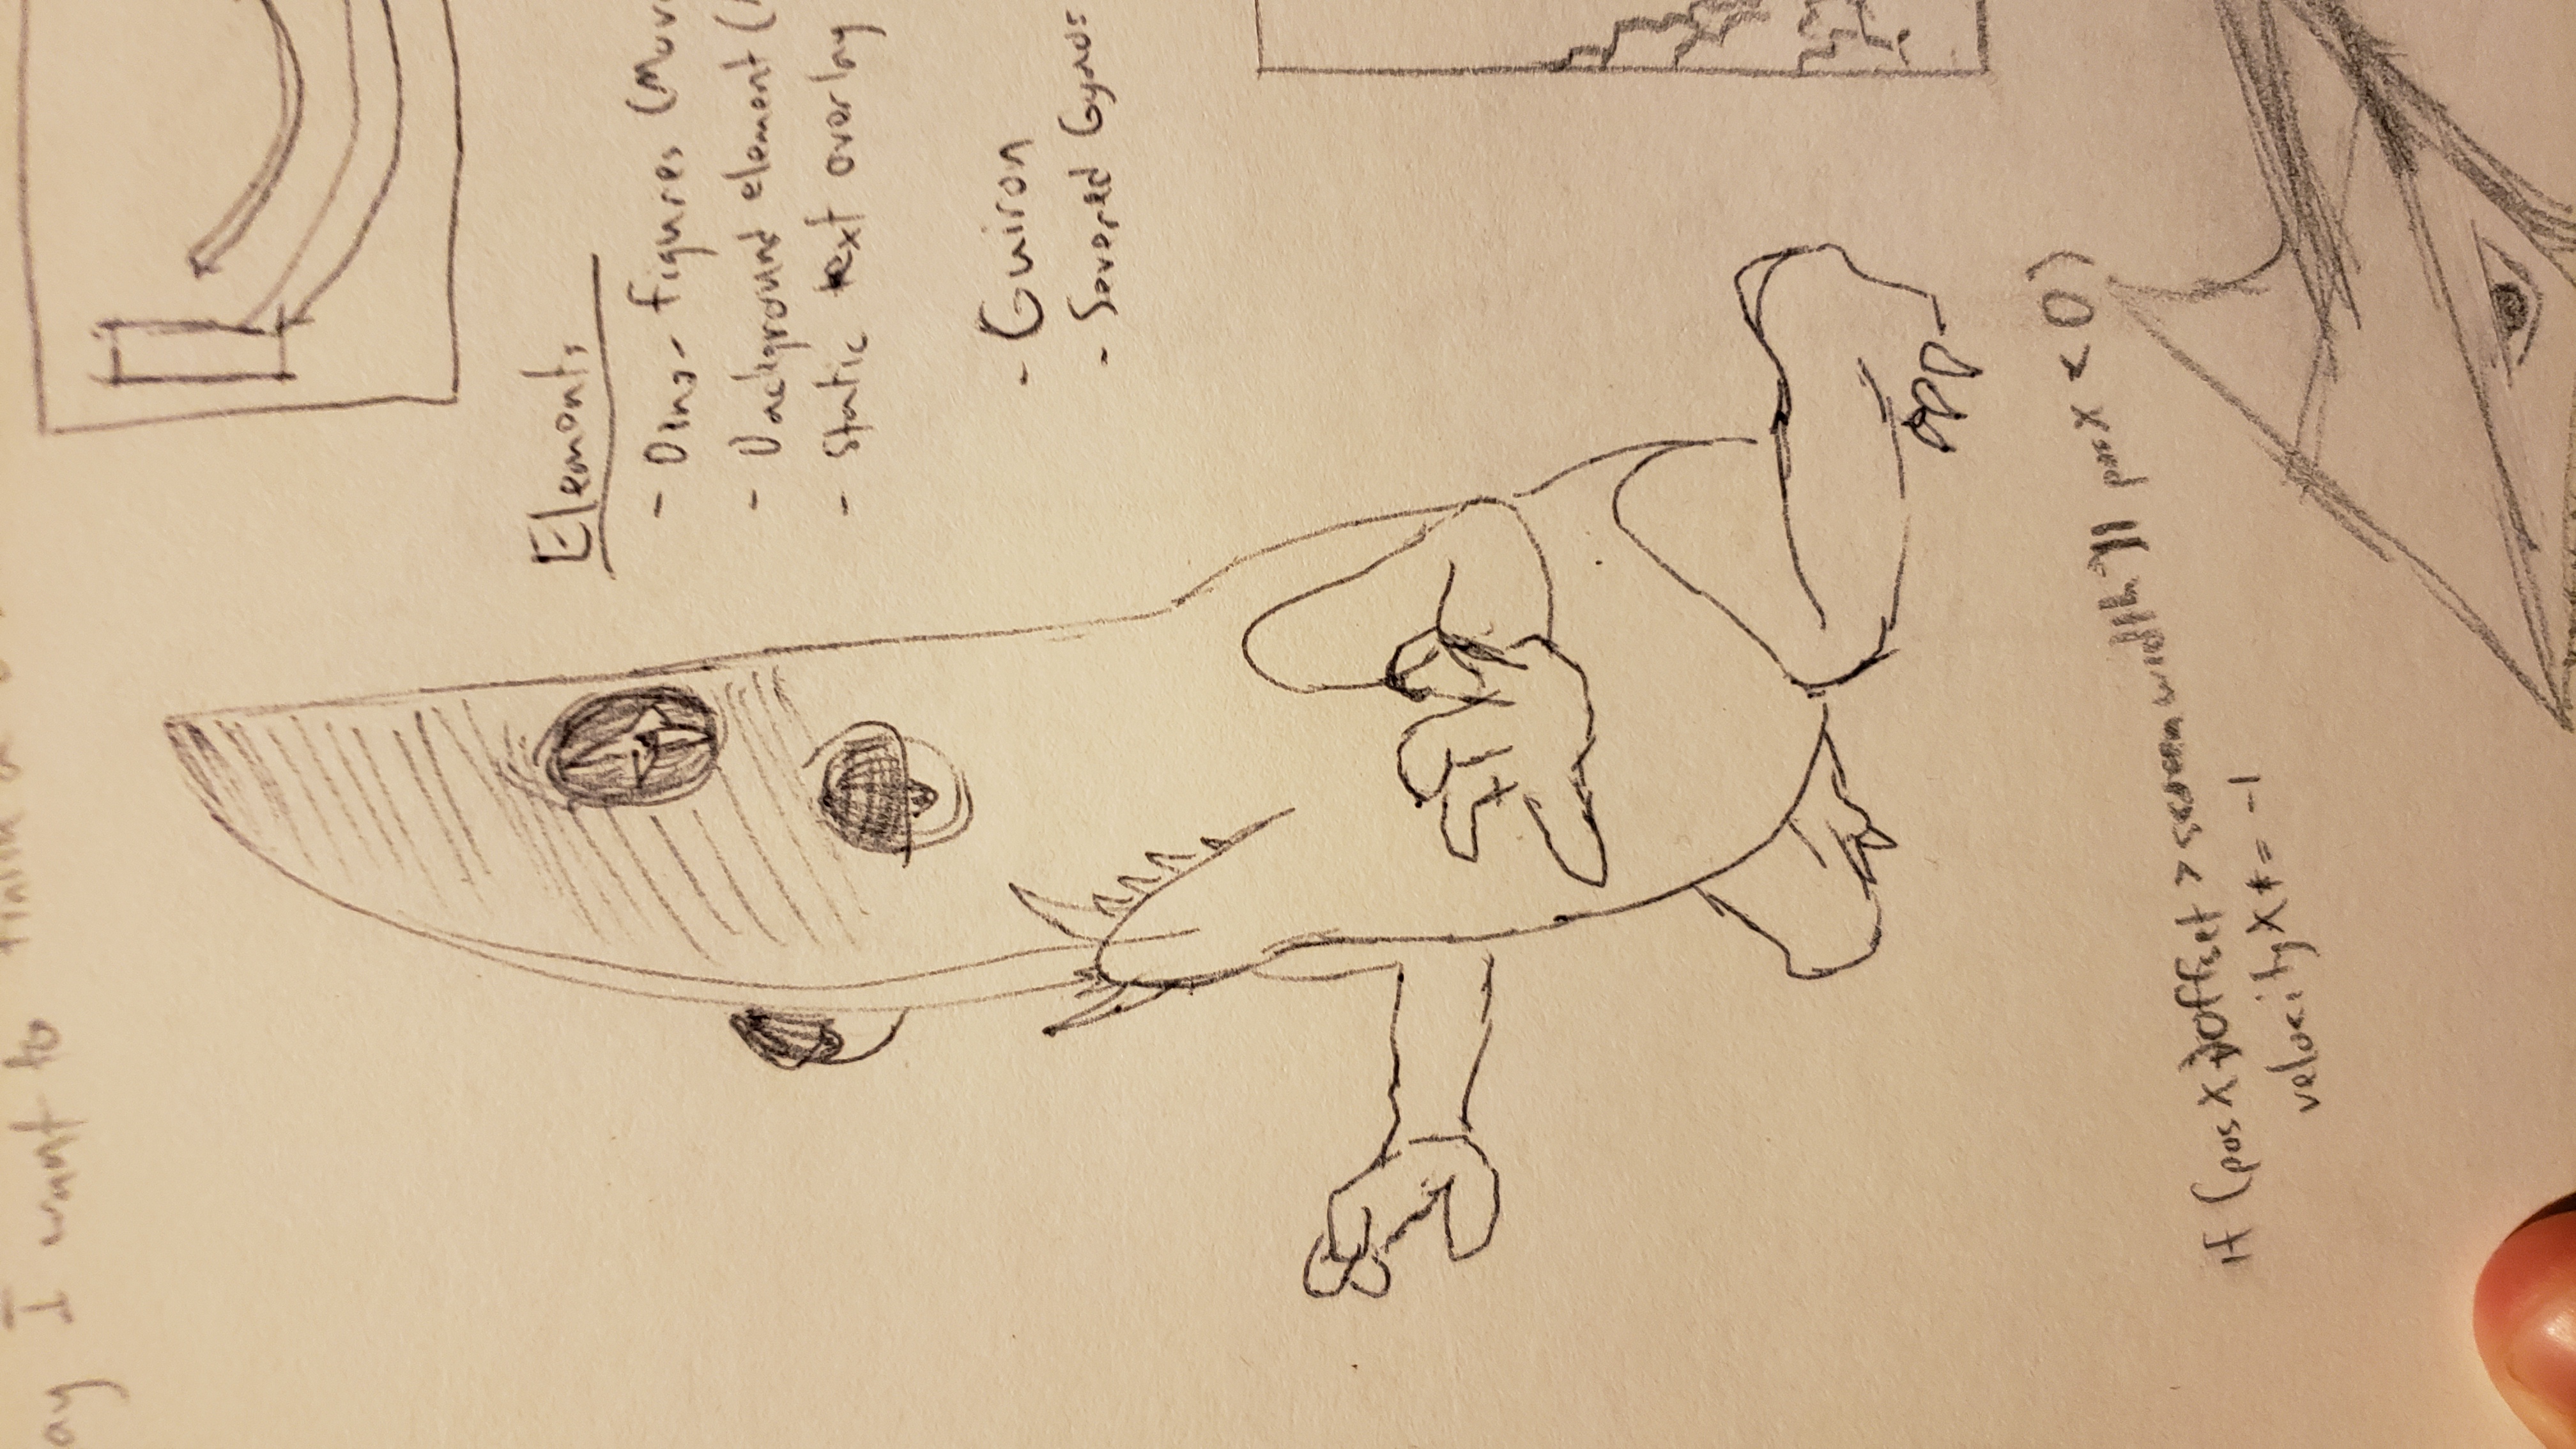 ay I want to finish a
Elements
- Dino-figures (Mov
- Background element (
- Static text overlay
- Guiron
- Severed Gyaos
if (posX + offset > screenwidth || posX < 0)
velocityX *= -1